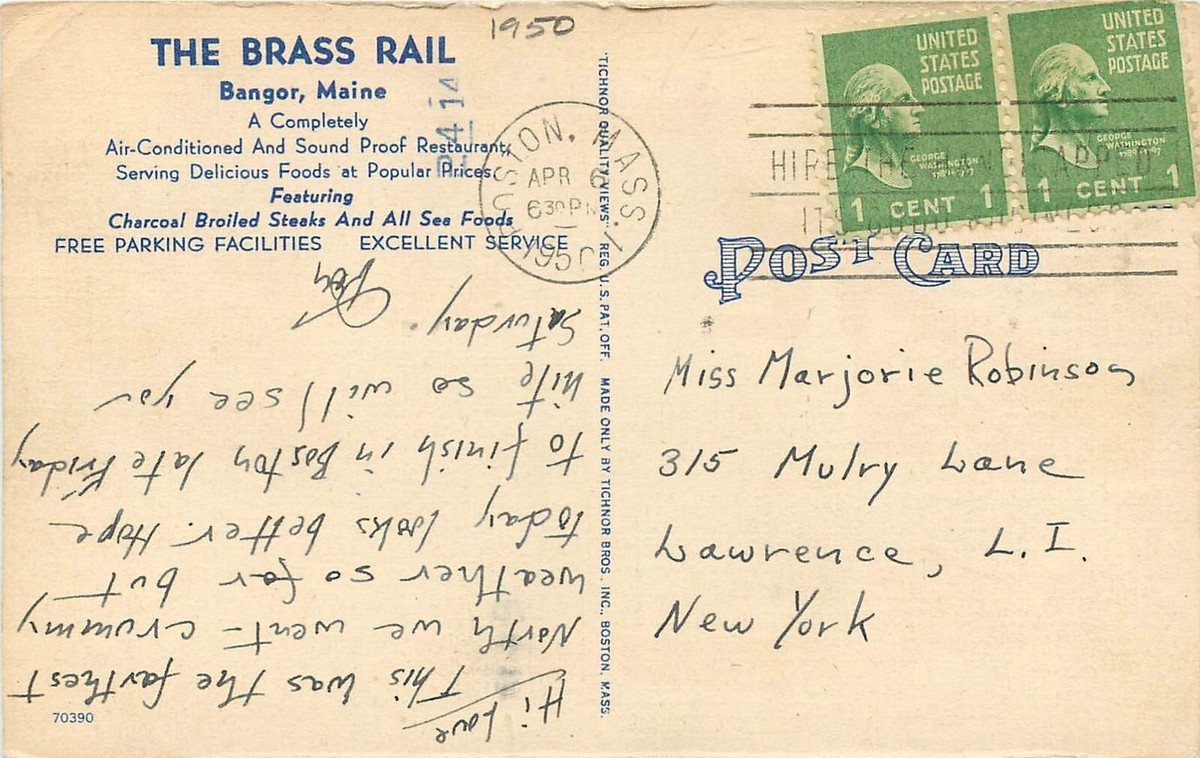 1950
THE BRASS RAIL
Bangor, Maine
A Completely
Air-Conditioned And Sound Proof Restaurant,
Serving Delicious Foods at Popular Prices.
Featuring
Charcoal Broiled Steaks And All Sea Foods
FREE PARKING FACILITIES EXCELLENT SERVICE
Hi Love
This was the farthest
North we went - crummy
weather so far but
today looks better. Hope
to finish in Boston late Friday
nite so will see you
Saturday.
70390
TICHNOR QUALITY VIEWS" REG. U.S. PAT. OFF. MADE ONLY BY TICHNOR BROS. INC., BOSTON, MASS.
BOSTON, MASS.
APR 6
630 PM
195
HIRE THE
UNITED
STATES
POSTAGE
GEORGE
WASHINGTON
1789-1797
1 CENT 1
UNITED
STATES
POSTAGE
GEORGE
WASHINGTON
1789-1797
1 CENT 1
POST CARD
Miss Marjorie Robinson
315 Mulry Lane
Lawrence, L.I.
New York